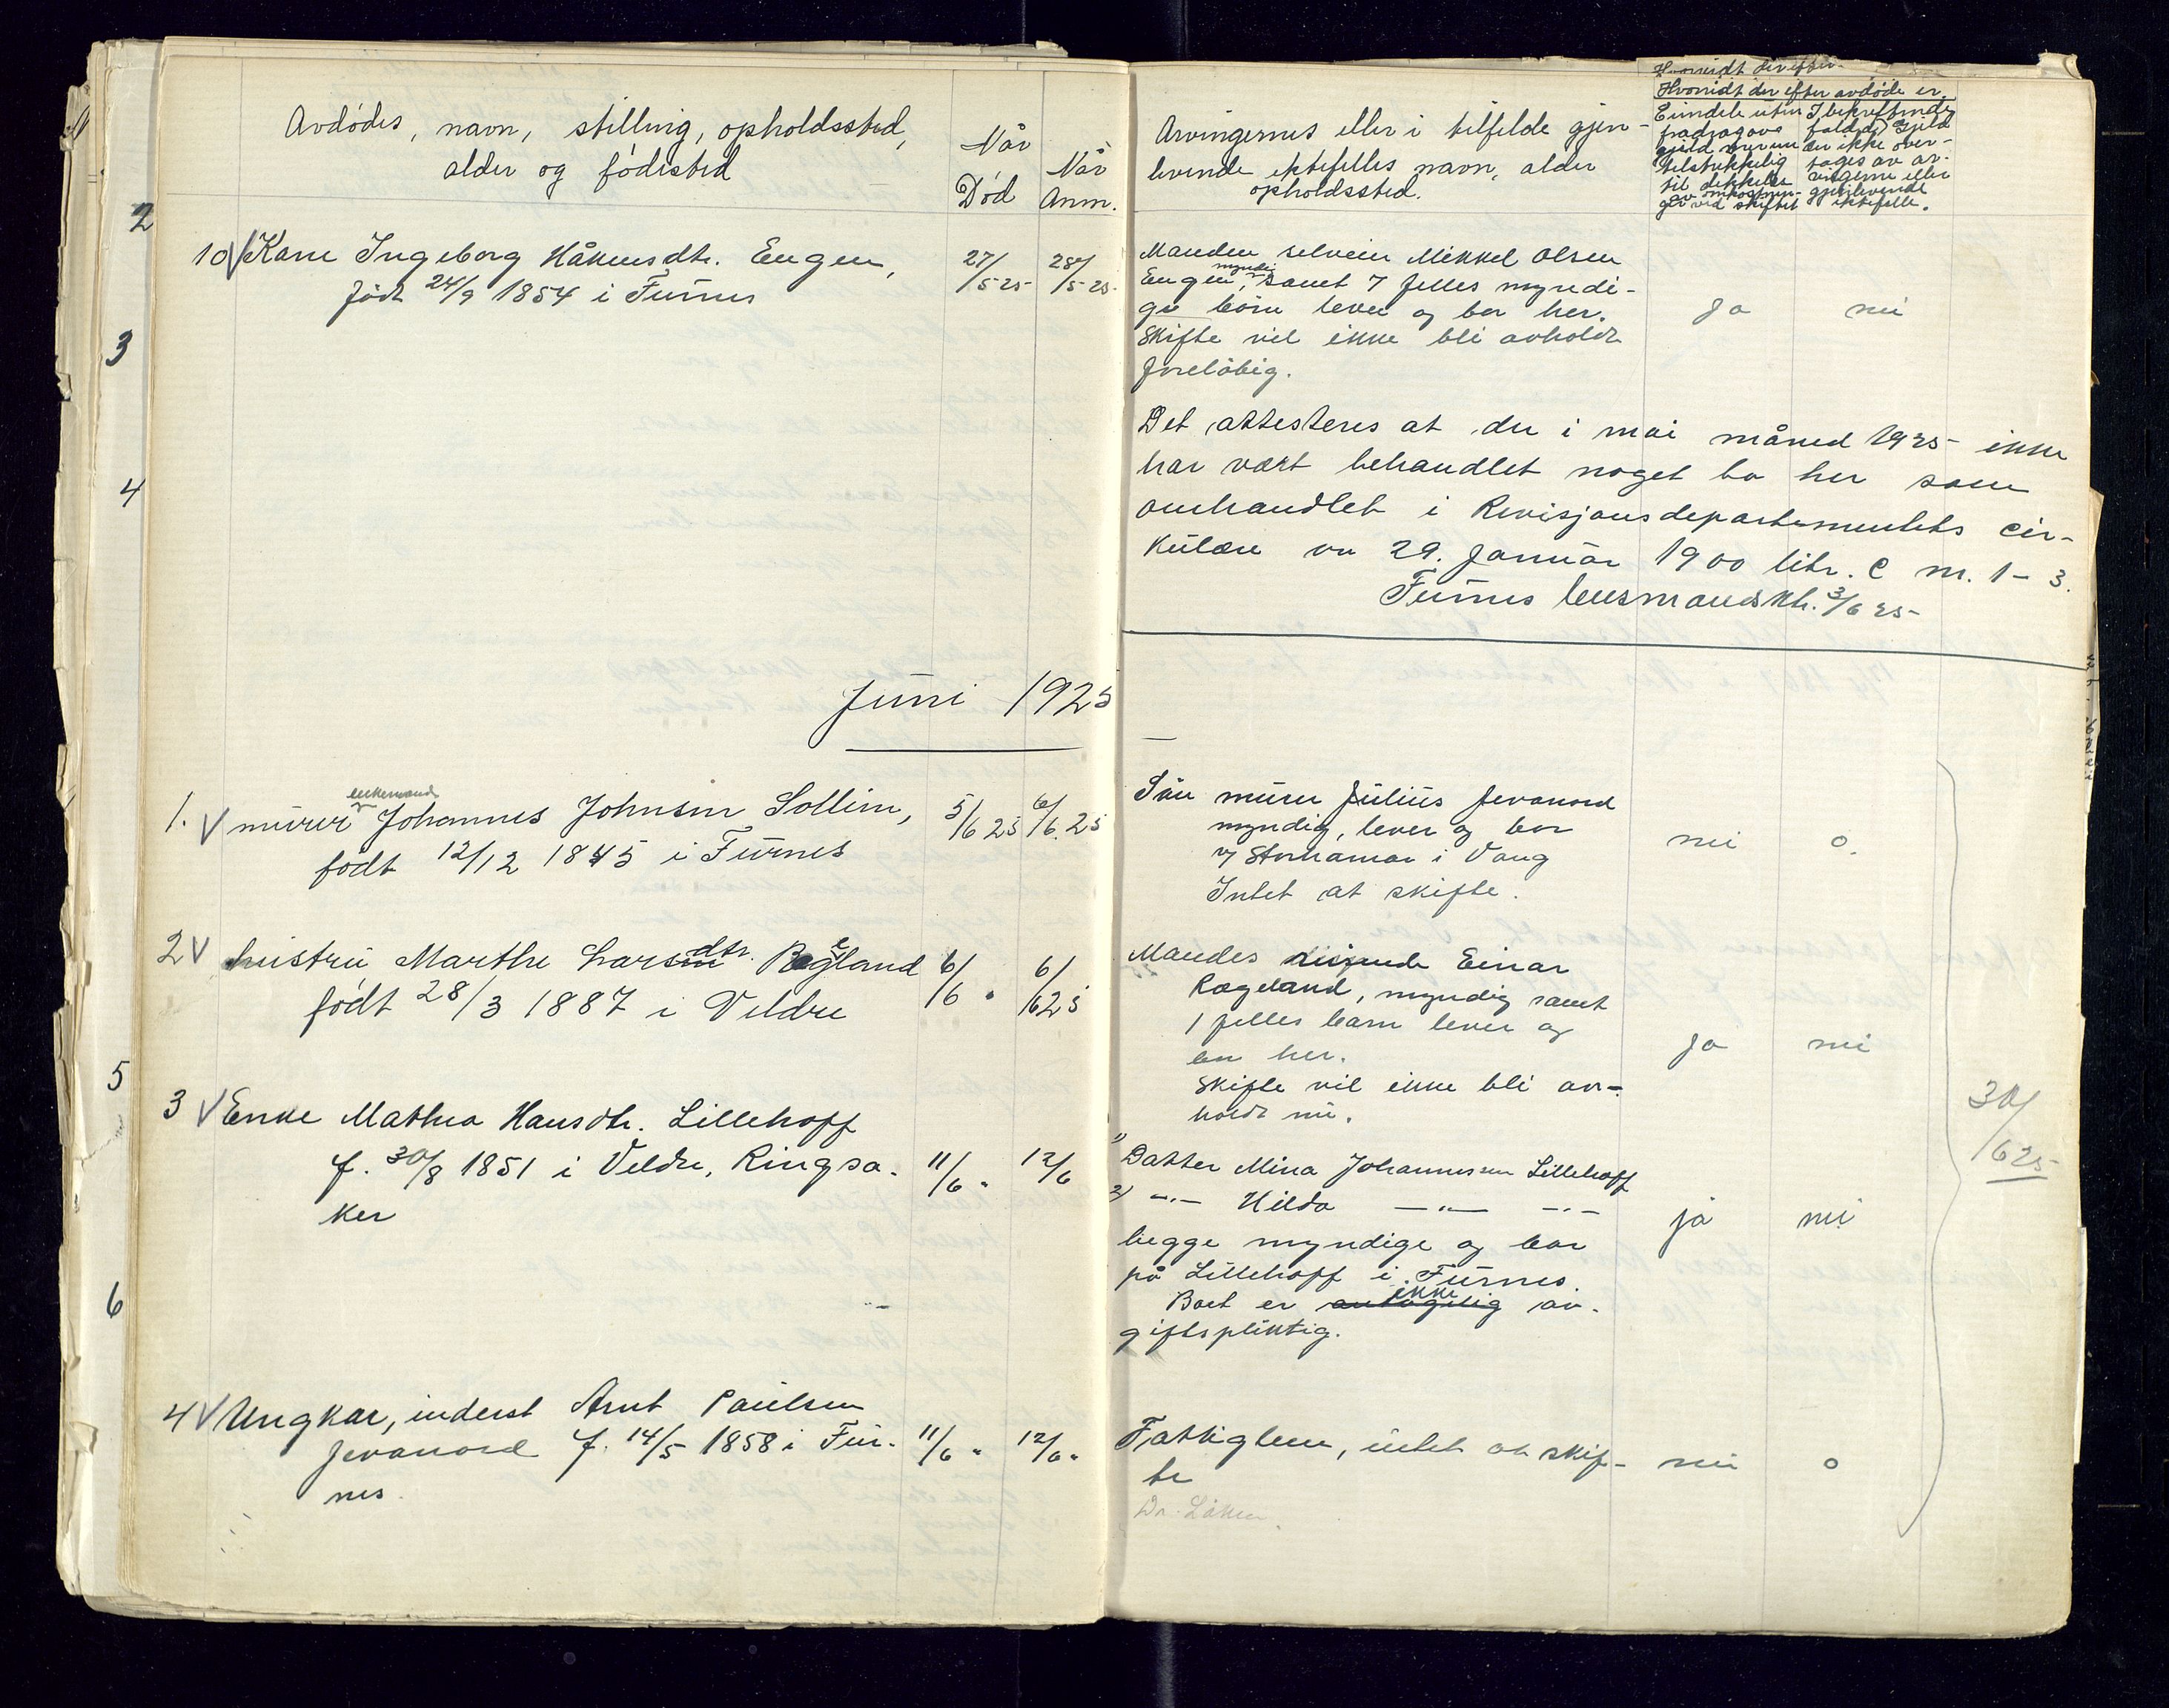 Avdødes, navn, stilling, opholdssted,
alder og fødested
Når
Død
Når
Anm.
Arvingernes eller i tilfelde gjen-
levende ektefelles navn, alder
opholdssted.
Hvorvidt der efter
Hvorvidt der efter avdøde er.
Eiendele uten
fradrag av
gjeld mer enn
tilstrekkelig
til dekkelse
av omkostnin-
ger ved skiftet
I bekreftende
fald der Gjeld
der ikke over-
tages av ar-
vingerne eller
gjenlevende
ektefelle.
2
3
4
5
6
10 V Kari Ingeborg Håkensdtr. Engen,
født 24/9 1854 i Furnes
27/5 25
28/5 25
Manden selveier Mikkel Olsen
Engen, myndig samt 7 felles myndi-
ge børn lever og bor her.
Skifte vil ikke bli avholdt
foreløbig.
Ja
nei
Det attesteres at der i mai måned 1925 ikke
har vært behandlet noget bo her som
omhandlet i Revisjonsdepartementets cir-
kulære av 29. Januar 1900 litr. C nr. 1-3.
Furnes lensmandsktr. 3/6 25
Juni 1925
1. V murer enkemand Johannes Johnsen Sollien,
født 12/12 1845 i Furnes
5/6 25
6/6. 25
Søn murer Julius Jevanord
myndig, lever og bor
v/ Storhamar i Vang
Intet at skifte.
nei
o.
2 V hustru Marthe Larsdtr. Rægeland
født 28/3 1887 i Veldre
6/6 "
6/6 25
Mandes reisende Einar
Rægeland, myndig samt
1 felles barn lever og
bor her.
Skifte vil ikke bli av-
holdt nu.
Ja
nei
3 V Enke Mathea Hansdtr. Lillehoff
f. 30/8 1851 i Veldre, Ringsa-
ker
11/6 "
12/6
1) Datter Mina Johannessen Lillehoff
2) -"- Hilda -"- -"-
begge myndige og bor
på Lillehoff i Furnes.
Boet er ikke av-
giftspliktig.
ja
nei
30/6 25
4 V Ungkar, inderst Arnt Paulsen
Jevanord f. 14/5 1858 i Fur-
nes.
11/6 "
12/6 "
Fattiglem, intet at skif-
te
nei
o
Dr. Løken.